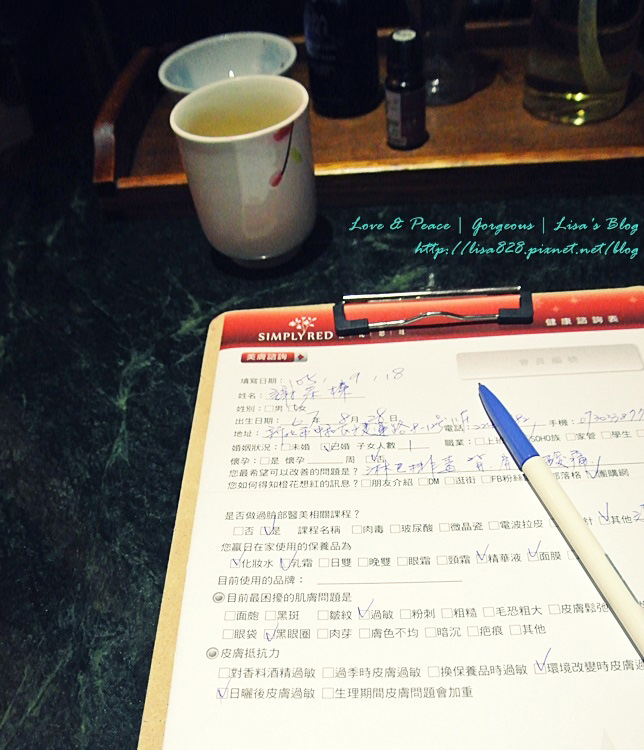 Love & Peace | Gorgeous | Lisa's Blog
http://lisa828.pixnet.net/blog
SIMPLYRED
健康諮詢表
美膚諮詢
會員編號
填寫日期：105.9.18
姓名：
姓別：□男 □女
出生日期： 年 8月 28日
地址： 電話： 手機：
婚姻狀況：□未婚 ☑已婚 子女人數 1 職業：□上班 SOHO族 □家管 □學生
懷孕：□是 懷孕 周 □否
您最希望可以改善的問題是？淋巴排毒 背 肩 酸痛
您如何得知橙花想紅的訊息？□朋友介紹 □DM □逛街 □FB粉絲 部落格 ☑團購網
是否做過臉部醫美相關課程？
□否 ☑是 課程名稱 □肉毒 □玻尿酸 □微晶瓷 □電波拉皮 針 ☑其他
您平日在家使用的保養品為
☑化妝水 ☑乳霜 □日霜 □晚霜 □眼霜 □頸霜 ☑精華液 ☑面膜
目前使用的品牌：
目前最困擾的肌膚問題是
□面皰 □黑斑 □皺紋 ☑過敏 □粉刺 □粗糙 □毛孔粗大 □皮膚鬆弛
□眼袋 ☑黑眼圈 □肉芽 □膚色不均 □暗沉 □疤痕 □其他
皮膚抵抗力
□對香料酒精過敏 □過季時皮膚過敏 □換保養品時過敏 ☑環境改變時皮膚過
☑日曬後皮膚過敏 □生理期間皮膚問題會加重